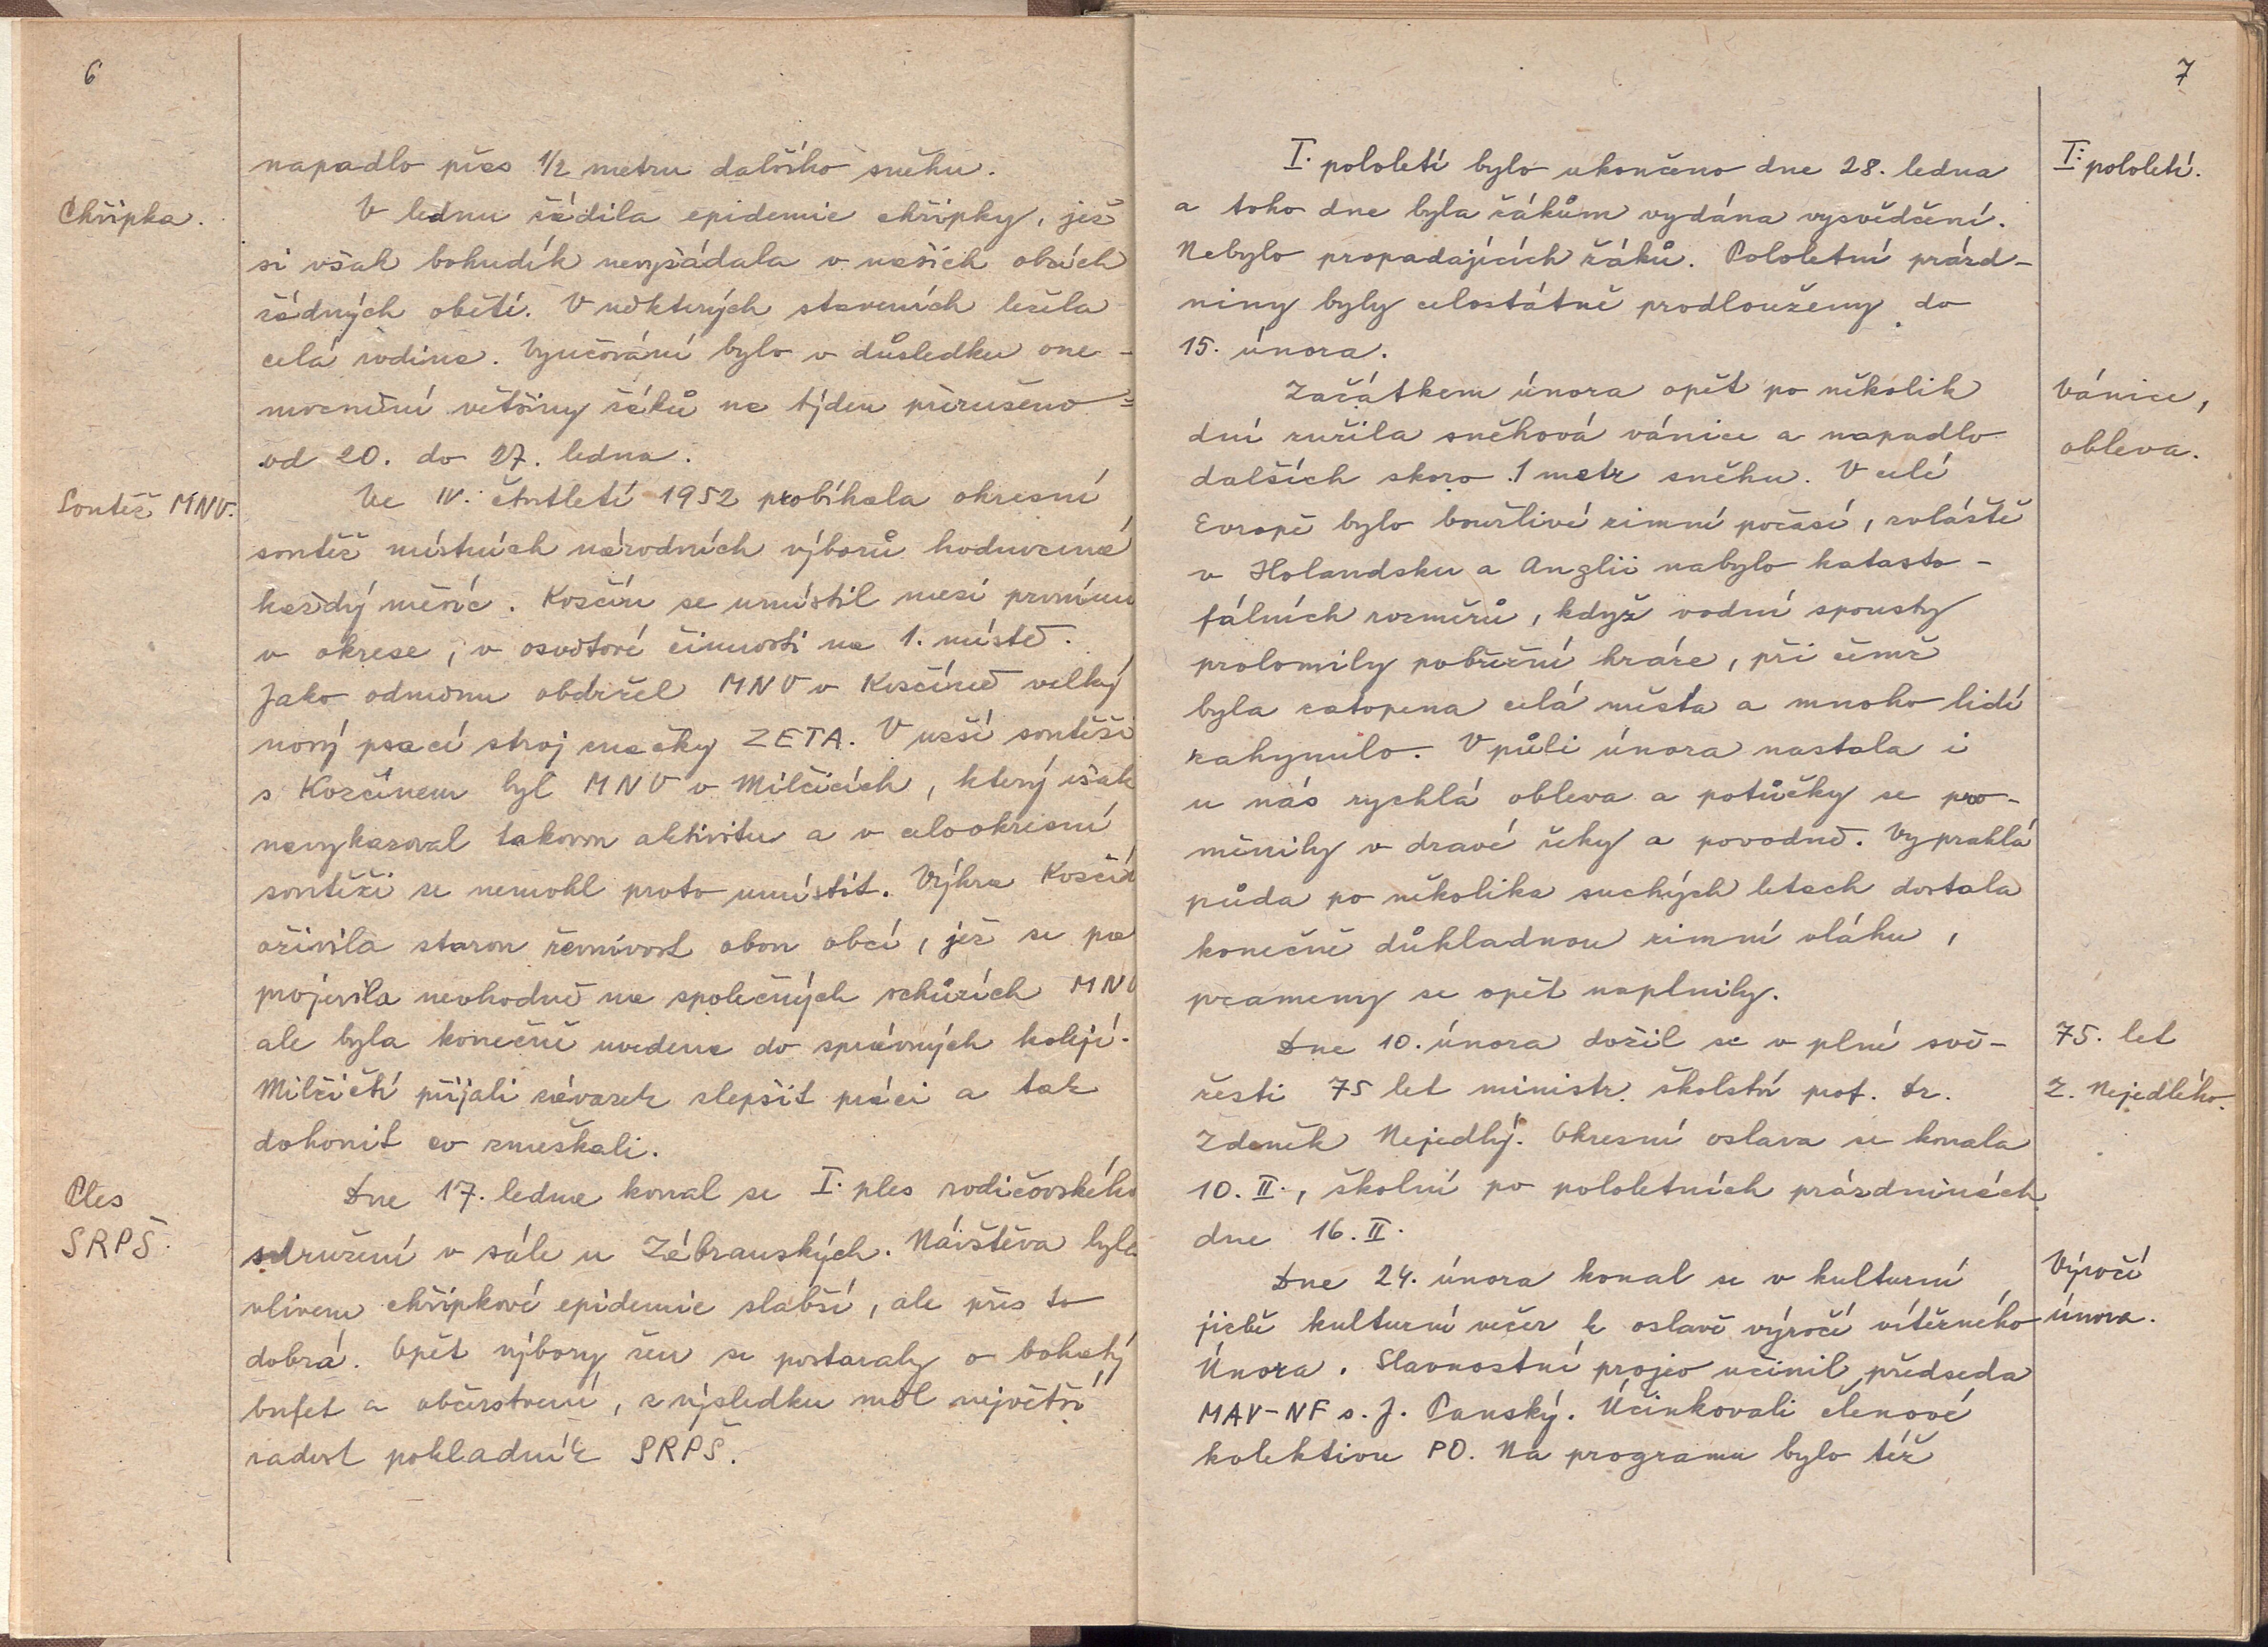 6
napadlo přes 1/2 metru dalšího sněhu.
Chřipka.
V lednu řádila epidemie chřipky, jež
si však bohudík nevyžádala v našich obcích
žádných obětí. V některých staveních ležela
celá rodina. Vyučování bylo v důsledku one-
mocnění většiny žáků na týden přerušeno =
od 20. do 27. ledna.
Soutěž MNV.
Ve IV. čtvrtletí 1952 probíhala okresní
soutěž místních národních výborů hodnocená
každý měsíc. Koščín se umístil mezi prvními
v okrese, v osvětové činnosti na 1. místě.
Jako odměnu obdržel MNV v Koščíně velký
nový psací stroj značky ZETA. V užší soutěži
s Koščínem byl MNV v Milčicích, který však
nevykazoval takovou aktivitu a v celookresní
soutěži se nemohl proto umístit. Výhra
oživila starou řevnivost obou obcí, jež se
projevila nevhodně na společných schůzích MNV
ale byla konečně uvedena do správných kolejí.
Milčičtí přijali závazek zlepšit práci a tak
dohonit co zmeškali.
Ples
SRPŠ.
Dne 17. ledna konal se I. ples rodičovského
sdružení v sále u Zábranských. Návštěva byla
vlivem chřipkové epidemie slabší, ale přes to
dobrá. Opět výbory žen se postaraly o bohatý
bufet a občerstvení, z výsledku měl největší
radost pokladník SRPŠ.
7
I. pololetí bylo ukončeno dne 28. ledna
I. pololetí.
a toho dne byla žákům vydána vysvědčení.
Nebylo propadajících žáků. Pololetní prázd-
niny byly celostátně prodlouženy do
15. února.
Začátkem února opět po několik
Vánice,
dní zuřila sněhová vánice a napadlo
obleva.
dalších skoro 1 metr sněhu. V celé
Evropě bylo bouřlivé zimní počasí, zvláště
v Holandsku a Anglii nabylo katasto-
fálních rozměrů, když vodní spousty
prolomily pobřežní hráze, při čemž
byla zatopena celá města a mnoho lidí
zahynulo. V půli února nastala i
u nás rychlá obleva a potůčky se pro-
měnily v dravé řeky a povodně. Vyprahlá
půda po několika suchých letech dostala
konečně důkladnou zimní vláhu,
prameny se opět naplnily.
Dne 10. února dožil se v plné svě-
75. let
žesti 75 let ministr školství prof. Dr.
Z. Nejedlého.
Zdeněk Nejedlý. Okresní oslava se konala
10. II., školní po pololetních prázdninách
dne 16. II.
Dne 24. února konal se v kulturní
Výročí
jizbě kulturní večer k oslavě výročí vítězného
února.
Února. Slavnostní projev učinil předseda
MAV-NF s. J. Panský. Účinkovali členové
kolektivu PO. Na programu bylo též